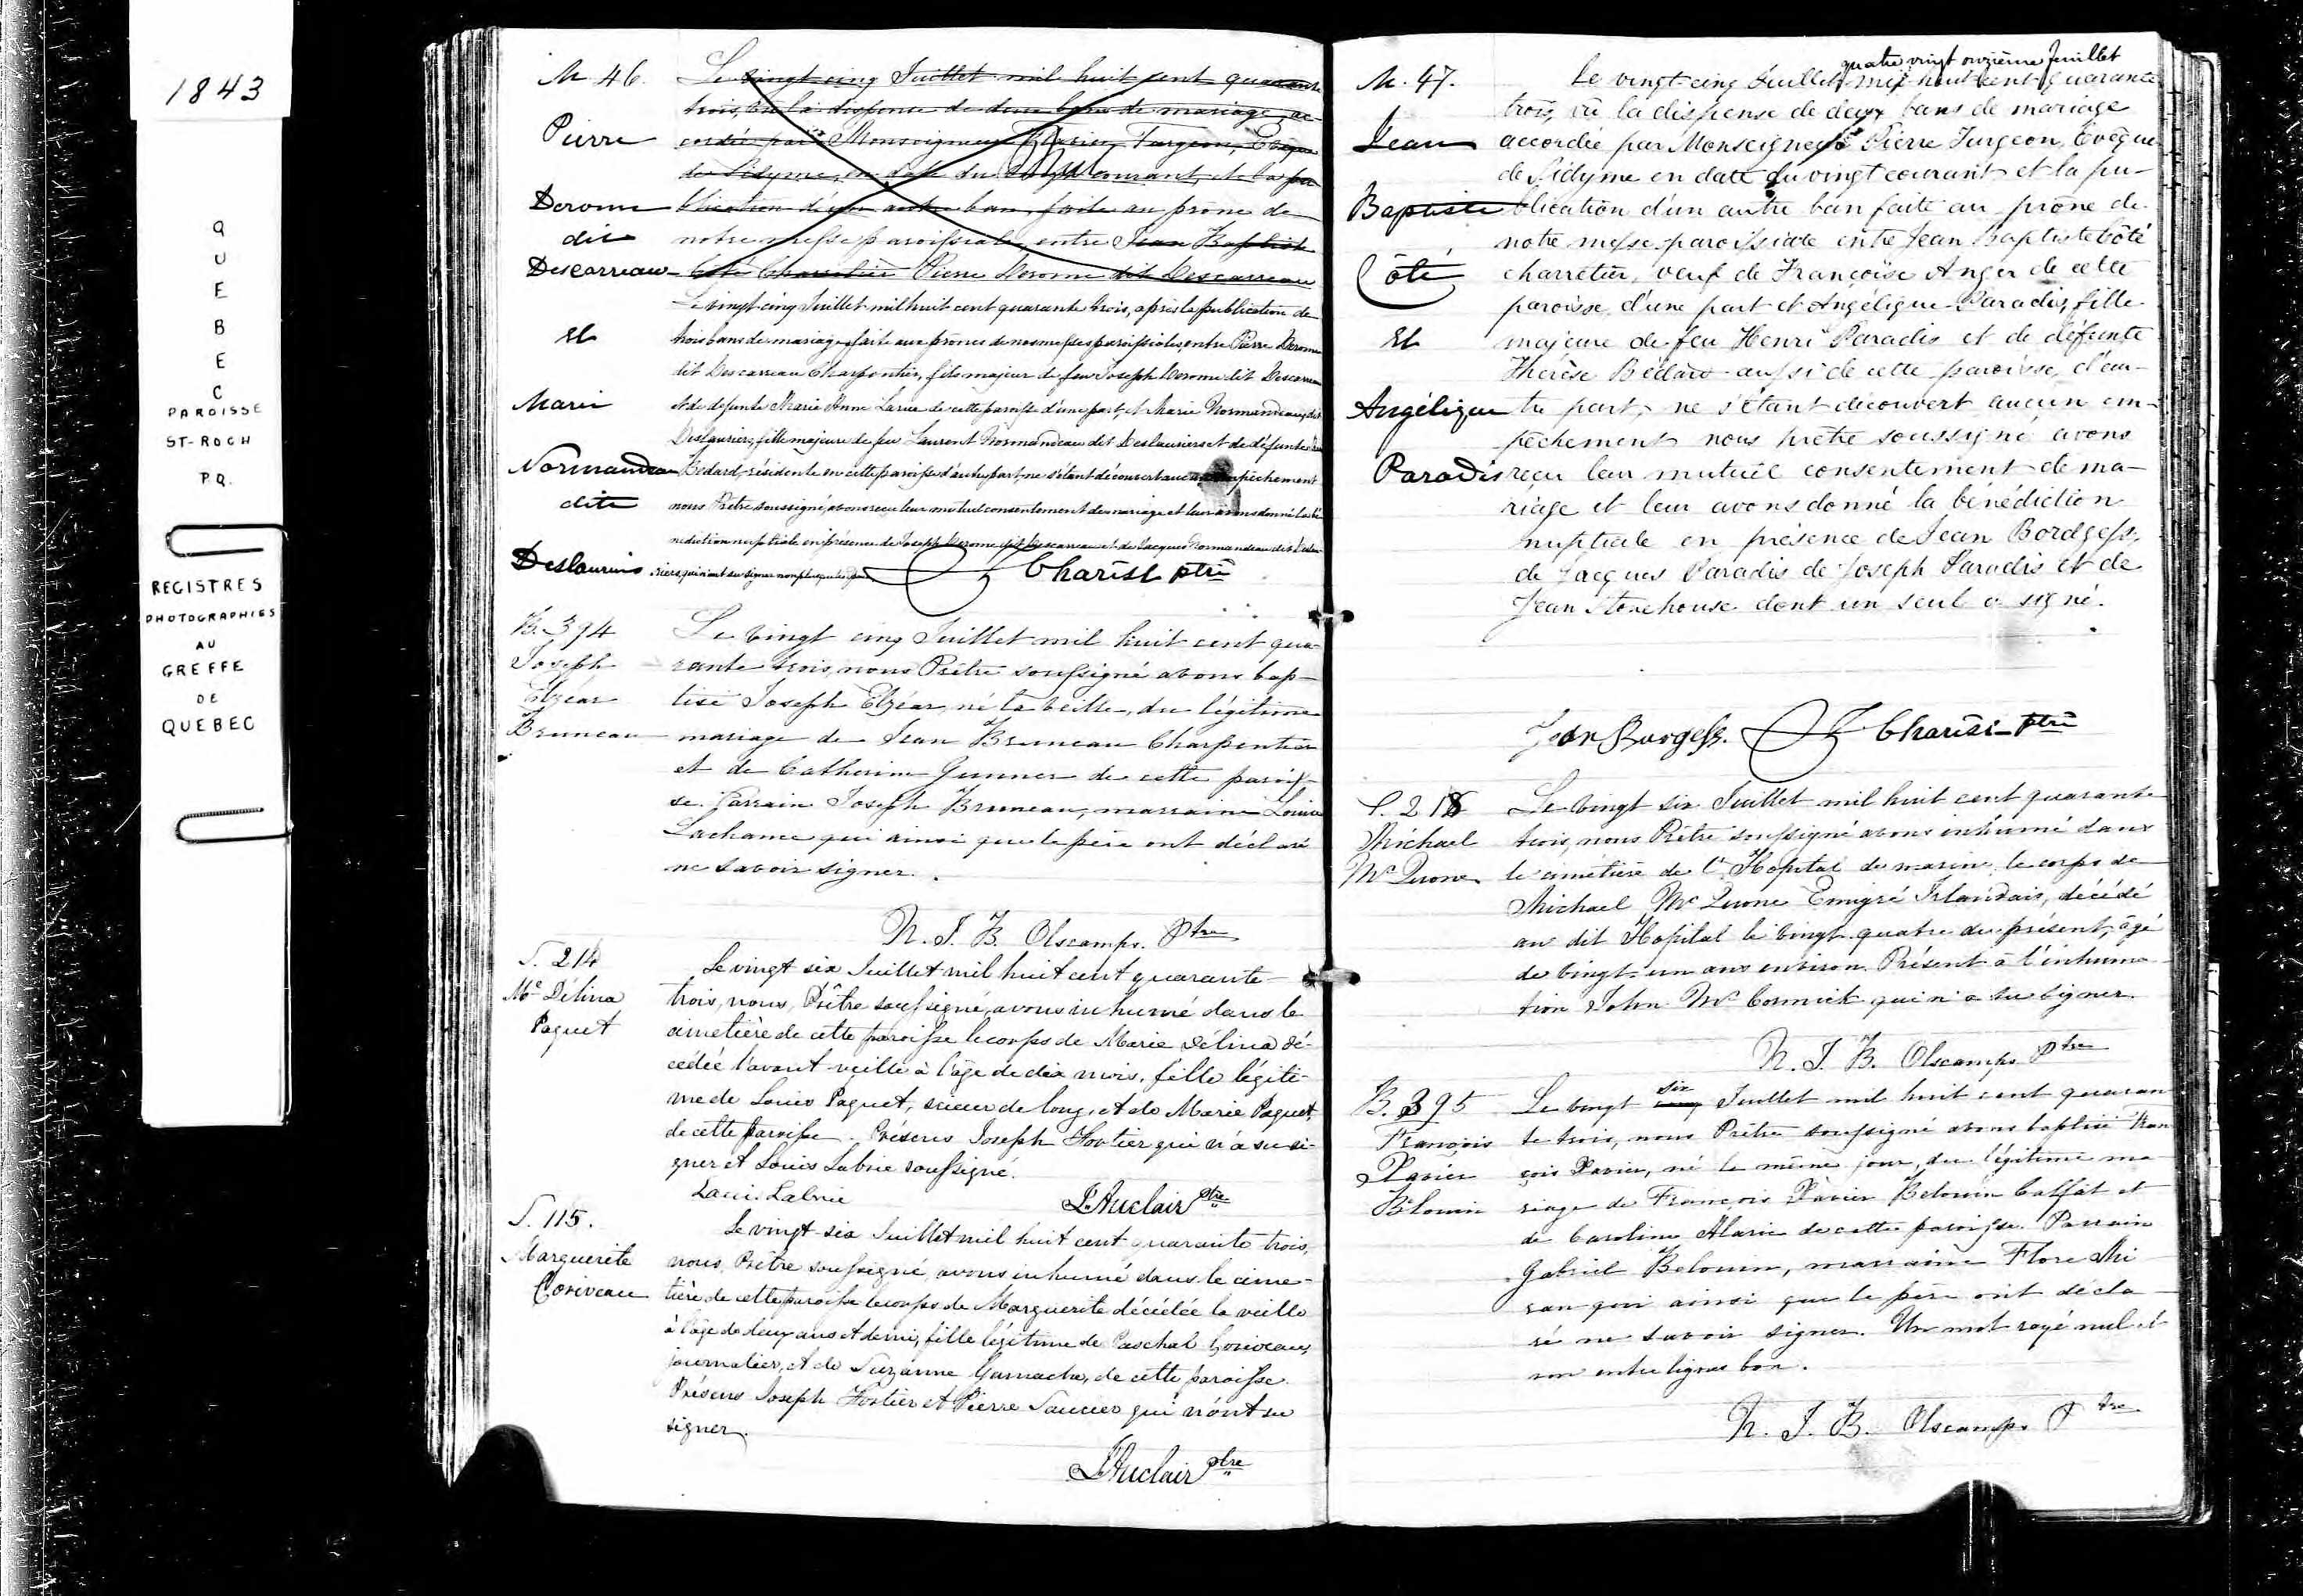 1843
QUEBEC
PAROISSE
ST-ROCH
P.Q.
REGISTRES
PHOTOGRAPHIES
AU
GREFFE
DE
QUEBEC
M. 46.
Pierre
Derome
dit
Descarreau
Et
Marie
Normandeau
dite
Deslauriers
Le vingt cinq Juillet mil huit cent quarante
trois, vu la dispense de deux bans de mariage, ac-
cordée par Monseigneur Flavien Turgeon, Evêque
de Sidyme, en date du vingt courant, et la pu-
Nul
blication d'un autre ban, faite au prône de
notre messe paroissiale, entre Jean Baptiste
Côté Charretier Pierre Derome dit Descarreau
Le vingt cinq Juillet mil huit cent quarante trois, après la publication de
trois bans de mariage, faite aux prônes de nos messes paroissiales, entre Pierre Derome
dit Descarreau Charpentier, fils majeur de feu Joseph Derome dit Descarreau
et de defunte Marie Anne Larue de cette paroisse d'une part, et Marie Normandeau, dit
Deslauriers, fille majeure de feu Laurent Normandeau dit Deslauriers et de défunte
Bedard, résidente en cette paroisse d'autre part, ne s'étant découvert aucun empêchement
nous Prêtre soussigné, avons reçu leur mutuel consentement de mariage et leur avons donné la bé-
nediction nuptiale en présence de Joseph Derome dit Descarreau et de Jacques Normandeau dit Deslau-
riers, qui n'ont su signer non plus que les
Charest ptre
B. 394
Joseph
Elzear
Bruneau
Le vingt cinq Juillet mil huit cent qua-
rante trois, nous Prêtre soussigné avons bap-
tisé Joseph Elzéar, né la veille, du légitime
mariage de Jean Bruneau Charpentier
et de Catherine Gunner de cette parois-
se. Parrain Joseph Bruneau, marraine Louise
Lachance qui ainsi que le père ont déclaré
ne savoir signer.
N. J. B. Olscamps. Ptre
S. 214
Me Délina
Paquet
Le vingt six Juillet mil huit cent quarante-
trois, nous, Prêtre soussigné, avons inhumé dans le
cimetière de cette paroisse le corps de Marie Délina dé-
cédée l'avant veille à l'âge de dix mois, fille légiti-
me de Louis Paquet, scieur de long, et de Marie Paquet,
de cette paroisse. Présens Joseph Fortier qui n'a su si-
gner et Louis Labrie soussigné.
Louis Labrie
L. Auclair Ptre
S. 115.
Marguerite
Coriveau
Le vingt-six Juillet mil huit cent quarante trois,
nous, Prêtre soussigné, avons inhumé dans le cime-
tière de cette paroisse le corps de Marguerite décédée la veille
à l'âge de deux ans et demi, fille légitime de Paschal Coriveau,
journalier, et de Suzanne Gamache, de cette paroisse.
Présens Joseph Fortier et Pierre Saucier qui n'ont su
signer.
L. Auclair ptre
M. 47.
Jean
Baptiste
Côté
Et
Angélique
Paradis
quatre vingt onzième feuillet
Le vingt-cinq Juillet mil huit cent quarante
trois, vû la dispense de deux bans de mariage
accordée par Monseigneur Pierre Turgeon, Evêque
de Sidyme en date du vingt courant et la pu-
blication d'un autre ban faite au prône de
notre messe paroissiale entre Jean Baptiste Côté
charretier, veuf de Françoise Anger de cette
paroisse, d'une part et Angélique Paradis, fille
majeure de feu Henri Paradis et de défunte
Thérèse Bédard aussi de cette paroisse, d'au-
tre part, ne s'étant découvert aucun em-
pêchement nous prêtre soussigné avons
reçu leur mutuel consentement de ma-
riage et leur avons donné la bénédiction
nuptiale en présence de Jean Bordgess,
de Jacques Paradis de Joseph Paradis et de
Jean Stonehouse dont un seul a signé.
Jean Burgess. Charest ptre
S. 216
Michael
Mc Quone
Le vingt six Juillet mil huit cent quarante
trois, nous Prêtre soussigné avons inhumé dans
le cimetière de l'Hopital de marine, le corps de
Michael Mc Quone Emigré Irlandais, décédé
au dit Hopital le vingt-quatre du présent, âgé
de vingt-un ans environ. Présent à l'inhuma-
tion John Mc Cormick qui n'a su signer.
N. J. B. Olscamps Ptre
B. 395
François
Xavier
Blouin
Le vingt cinq six Juillet mil huit cent quaran
te trois, nous Prêtre soussigné avons baptisé Fran
çois Xavier, né le même jour, du légitime ma-
riage de François Xavier Belouin Calfat et
de Caroline Alarie de cette paroisse. Parrain
Gabriel Belouin, marraine Flore Mi
ran qui ainsi que le père ont décla-
ré ne savoir signer. Un mot rayé nul et
un entre lignes bon.
N. J. B. Olscamps Ptre